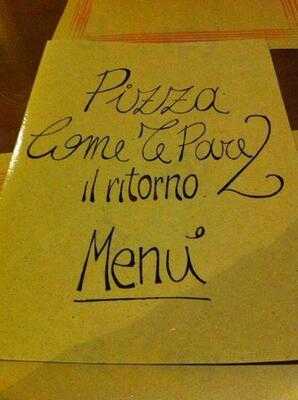 Pizza
Come Te Pare 2
il ritorno
Menù